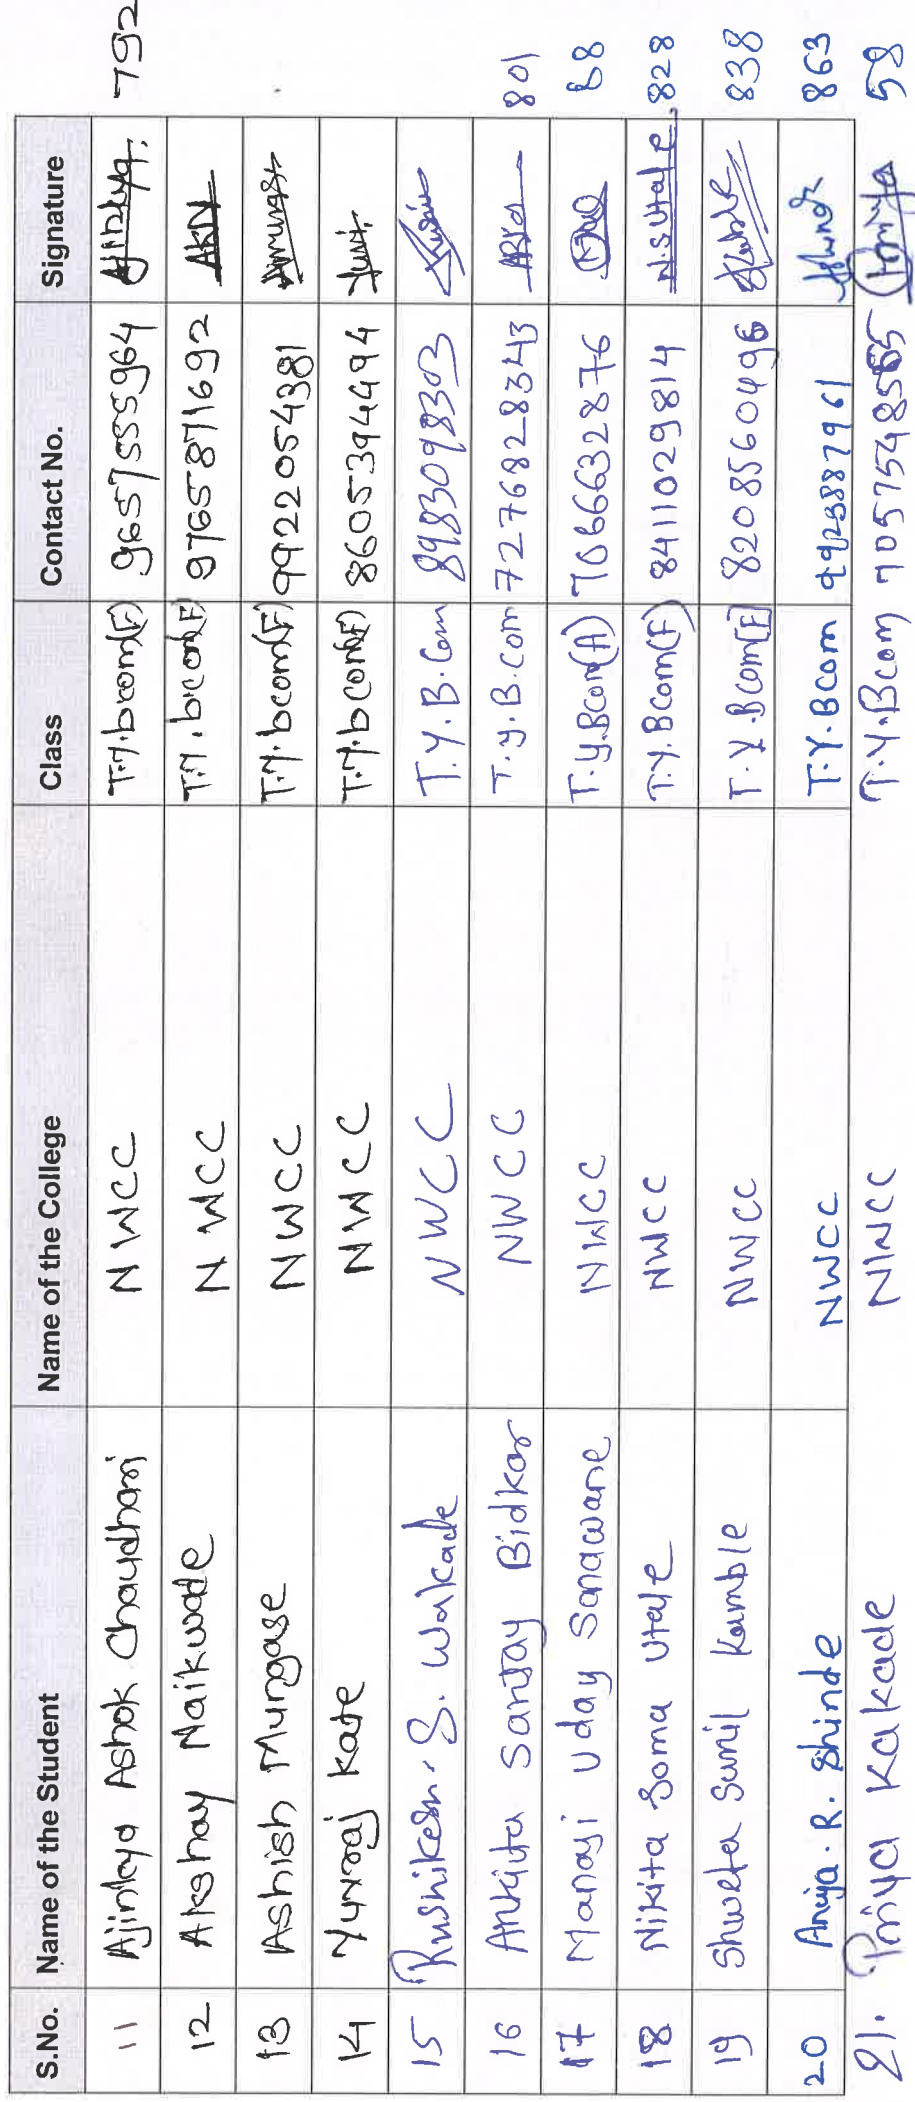 S.No. Name of the Student Name of the College Class Contact No. Signature
11 Ajinkya Ashok Chaudhari NWCC T.Y.bcom(F) 9657555964 Ajinkya. 792
12 Akshay Naikwade NWCC T.Y.bcom(F) 9765871692 AKN
13 Ashish Mungase NWCC T.Y.bcom(F) 9922054381
14 Yuvraj Kate NWCC T.Y.bcom(F) 8605394494
15 Rushikesh. S. Wakade NWCC T.Y.B.Com 8983098303
16 Ankita Sanjay Bidkar NWCC T.Y.B.Com 7276828343 801
17 Manasi Uday Sonawane NWCC T.Y.Bcom(A) 7066632876 68
18 Nikita Soma Utale NWCC T.Y.Bcom(F) 8411029814 N.S.Utale 828
19 Shweta Sunil Kamble NWCC T.Y.Bcom[F] 8208560496 838
20 Anuja.R. Shinde NWCC T.Y.Bcom 863
21. Priya Kakade NWCC T.Y.Bcom Priya 58